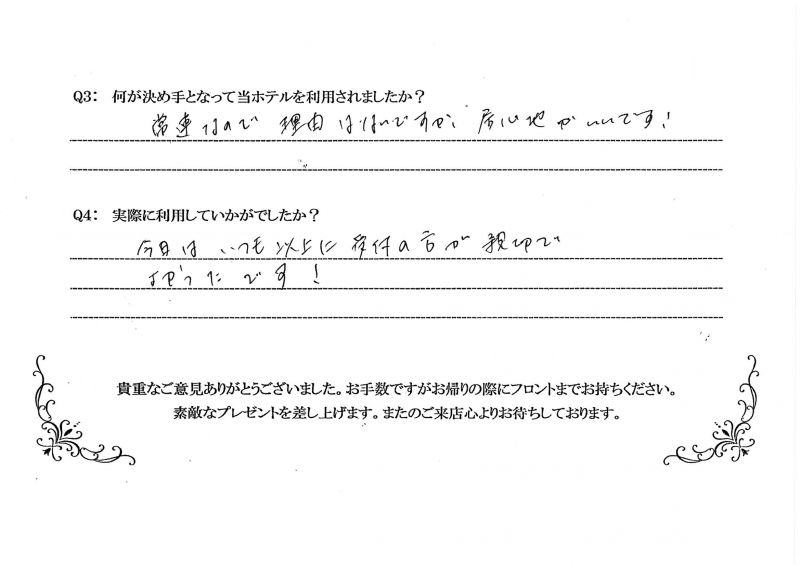 Q3： 何が決め手となって当ホテルを利用されましたか？
常連なので 理由はないですが、居心地がいいです！
Q4： 実際に利用していかがでしたか？
今日は いつも以上に 受付の方が 親切で
よかったです！
貴重なご意見ありがとうございました。お手数ですがお帰りの際にフロントまでお持ちください。
素敵なプレゼントを差し上げます。またのご来店心よりお待ちしております。